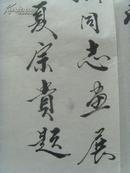 同志画展
夏宗贵题